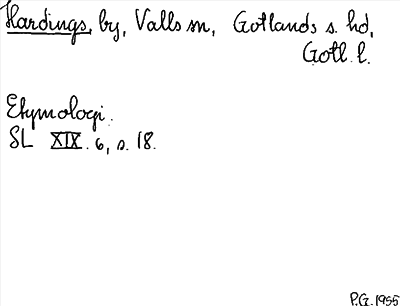 Hardings, by, Valls sn, Gotlands s. hd,
Gotl. l.
Etymologi.
SL XIX. 6, s. 18.
P.G. 1955